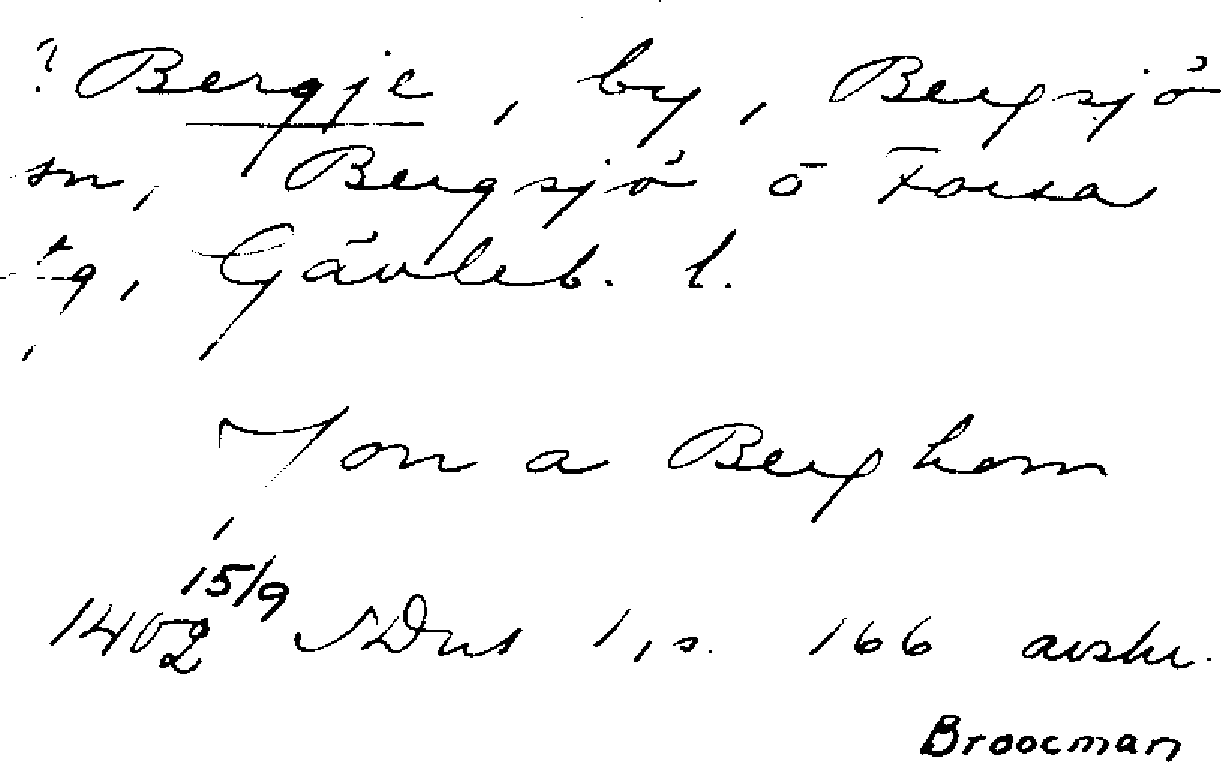 ? Bergje, by, Bergsjö
sn, Bergsjö o Forsa
tg, Gävleb. l.
Jon a Berghem
15/9
1402 SDns 1, s. 166 avskr.
Broocman